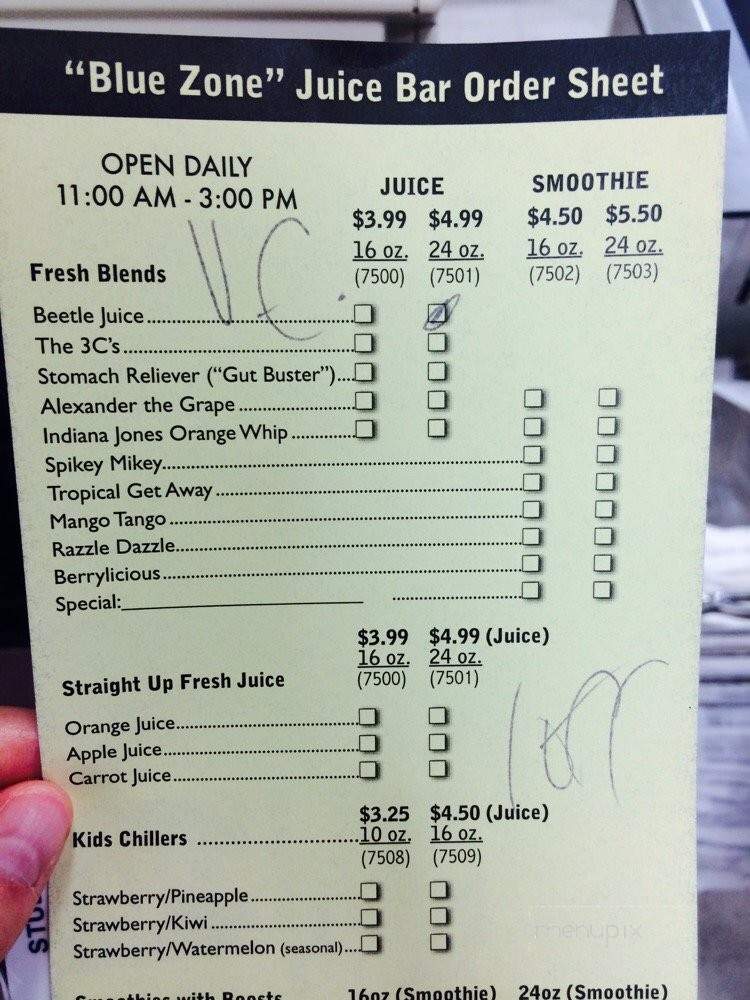 “Blue Zone” Juice Bar Order Sheet
OPEN DAILY
11:00 AM - 3:00 PM
JUICE SMOOTHIE
$3.99 $4.99 $4.50 $5.50
16 oz. 24 oz. 16 oz. 24 oz.
Fresh Blends (7500) (7501) (7502) (7503)
Beetle Juice
The 3C's
Stomach Reliever (“Gut Buster”)
Alexander the Grape
Indiana Jones Orange Whip
Spikey Mikey
Tropical Get Away
Mango Tango
Razzle Dazzle
Berrylicious
Special:
$3.99 $4.99 (Juice)
16 oz. 24 oz.
Straight Up Fresh Juice (7500) (7501)
Orange Juice
Apple Juice
Carrot Juice
$3.25 $4.50 (Juice)
Kids Chillers 10 oz. 16 oz.
(7508) (7509)
Strawberry/Pineapple
Strawberry/Kiwi
Strawberry/Watermelon (seasonal)
Smoothies with Boosts 16oz (Smoothie) 24oz (Smoothie)
STU
menupix